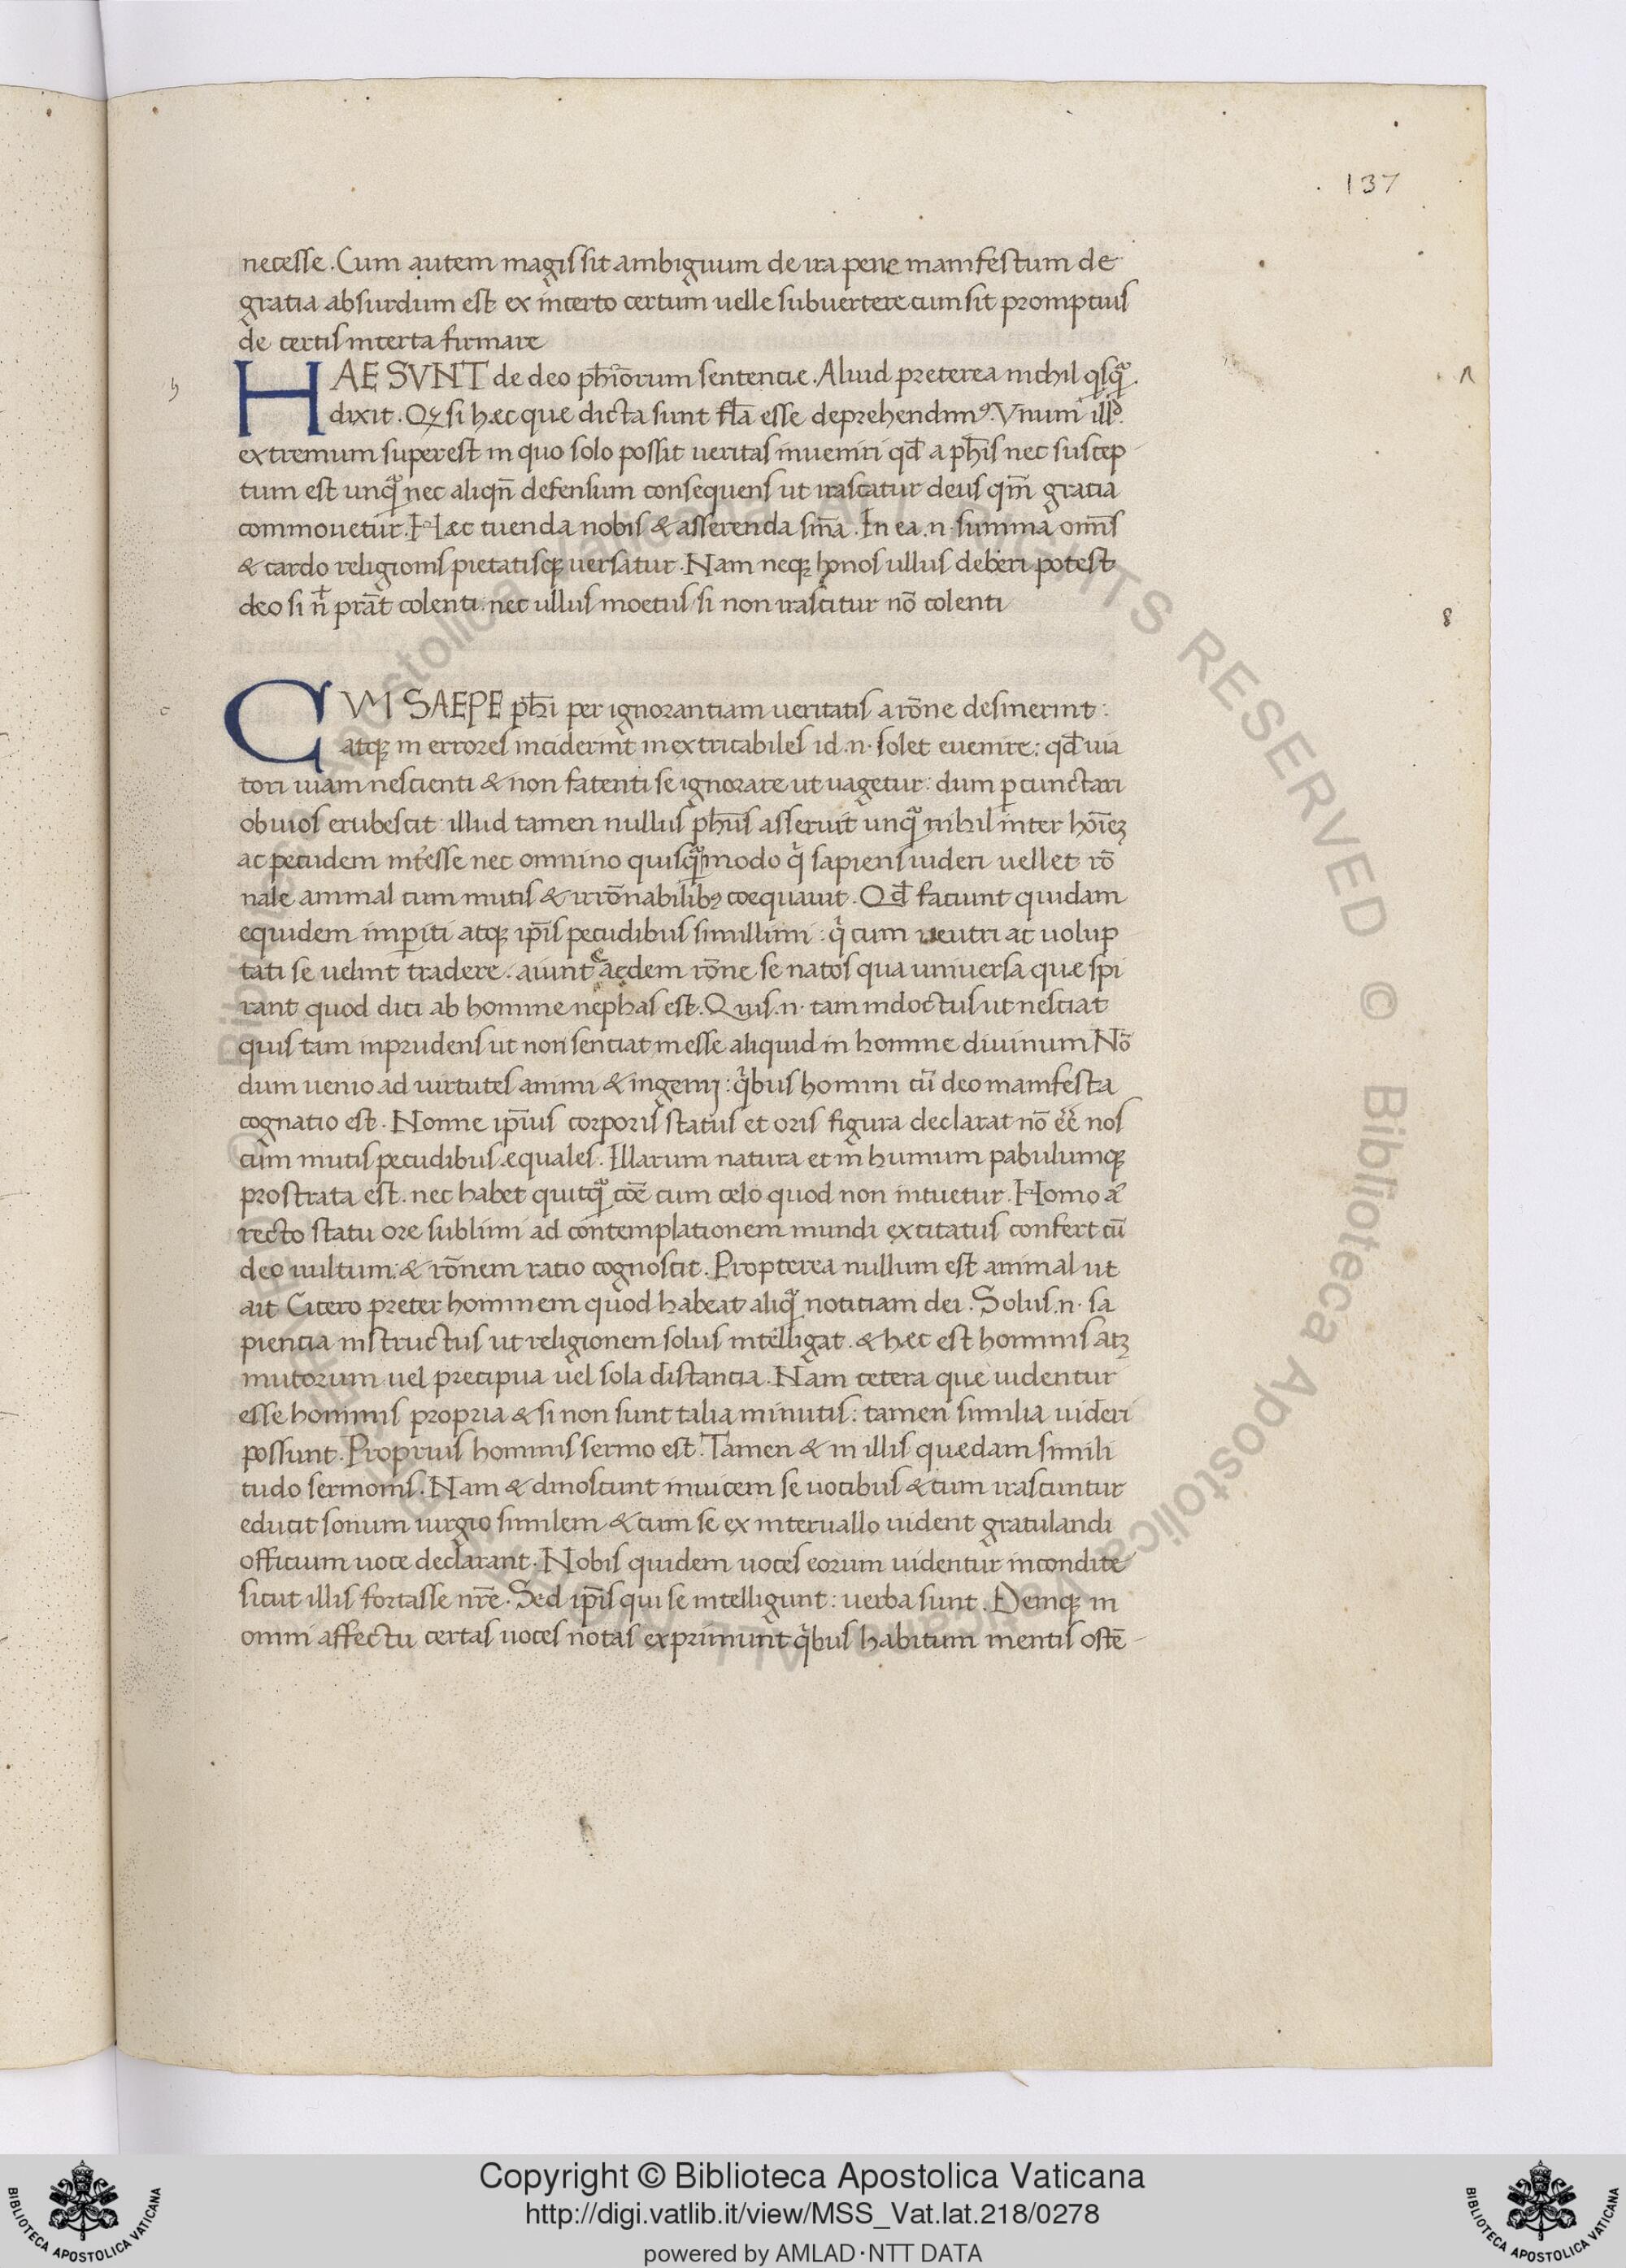 137
necesse. Cum autem magis sit ambiguum de ira pene manifestum de
gratia absurdum est ex incerto certum uelle subuertere cum sit promptius
de certis incerta firmare
HAE SVNT de deo ph̄orum sentencie. Aliud preterea nichil qsq̄
dixit. Qꝫ si hæc que dicta sunt fl̄a esse deprehendimꝰ. Vnum illd
extremum superest in quo solo possit ueritas inueniri qd̄ a ph̄is nec suscep
tum est unq̄ nec aliqn̄ defensum consequens ut irascatur deus qm̄ gratia
commouetur. Hæc tuenda nobis & asserenda sn̄ia. In ea .n. summa omīs
& cardo religionis pietatisqꝫ uersatur. Nam neqꝫ honos ullus deberi potest
deo si n̄ p̄rat colenti. nec ullus moetus si non irascitur nō colenti
8
CVM SAEPE ph̄i per ignorantiam ueritatis a rōne desinerint:
atqꝫ in errores inciderint inextricabiles id .n. solet euenire: qd̄ uia
tori uiam nescienti & non fatenti se ignorare ut uagetur: dum ꝑcunctari
obuios erubescit illud tamen nullus ph̄us asseruit unq̄ nihil inter hoīeꝫ
ac pecudem int̄esse nec omnino quisq̄ modo q̇ sapiens uideri uellet rō
nale animal cum mutis & irrōnabilibꝫ coequauit. Qd̄ faciunt quidam
equidem imꝑiti atqꝫ ip̄is pecudibus simillimi: q̇ cum uentri ac uolup
tati se uelint tradere. aiunt eaedem rōne se natos qua uniuersa que spi
rant quod dici ab homine nephas est. Quis .n. tam indoctus ut nesciat
quis tam inprudens ut non senciat inesse aliquid in homine diuinum Nō
dum uenio ad uirtutes animi & ingenij: q̇bus homini cū deo manifesta
cognatio est. Nonne ip̄ius corporis status et oris figura declarat nō eē nos
cum mutis pecudibus equales. Illarum natura et in humum pabulumqꝫ
prostrata est. nec habet quitq̄ coē cum celo quod non intuetur. Homo a᷑
recto statu ore sublimi ad contemplationem mundi excitatus confert cū
deo uultum: & rōnem ratio cognoscit. Propterea nullum est animal ut
ait Cicero preter hominem quod habeat aliq̄ noticiam dei. Solus .n. sa
piencia instructus ut religionem solus intelligat. & hæc est hominis atꝫ
mutorum uel precipua uel sola distancia. Nam cetera que uidentur
esse hominis propria & si non sunt talia in mutis: tamen similia uideri
possunt. Proprius hominis sermo est. Tamen & in illis quedam simili
tudo sermonis. Nam & dinoscunt inuicem se uocibus & cum irascuntur
educit sonum iurgio similem & cum se ex interuallo uident gratulandi
officium uoce declarant. Nobis quidem uoces eorum uidentur incondite
sicut illis fortasse nr̄e. Sed ip̄is qui se intelligunt: uerba sunt. Deniqꝫ in
omni affectu certas uoces notas exprimunt q̇bus habitum mentis ostē
© Biblioteca Apostolica Vaticana ALL RIGHTS RESERVED © Biblioteca Apostolica Vaticana ALL RIGHTS RESERVED
Copyright © Biblioteca Apostolica Vaticana
http://digi.vatlib.it/view/MSS_Vat.lat.218/0278
powered by AMLAD·NTT DATA
BIBLIOTECA APOSTOLICA VATICANA
BIBLIOTECA APOSTOLICA VATICANA